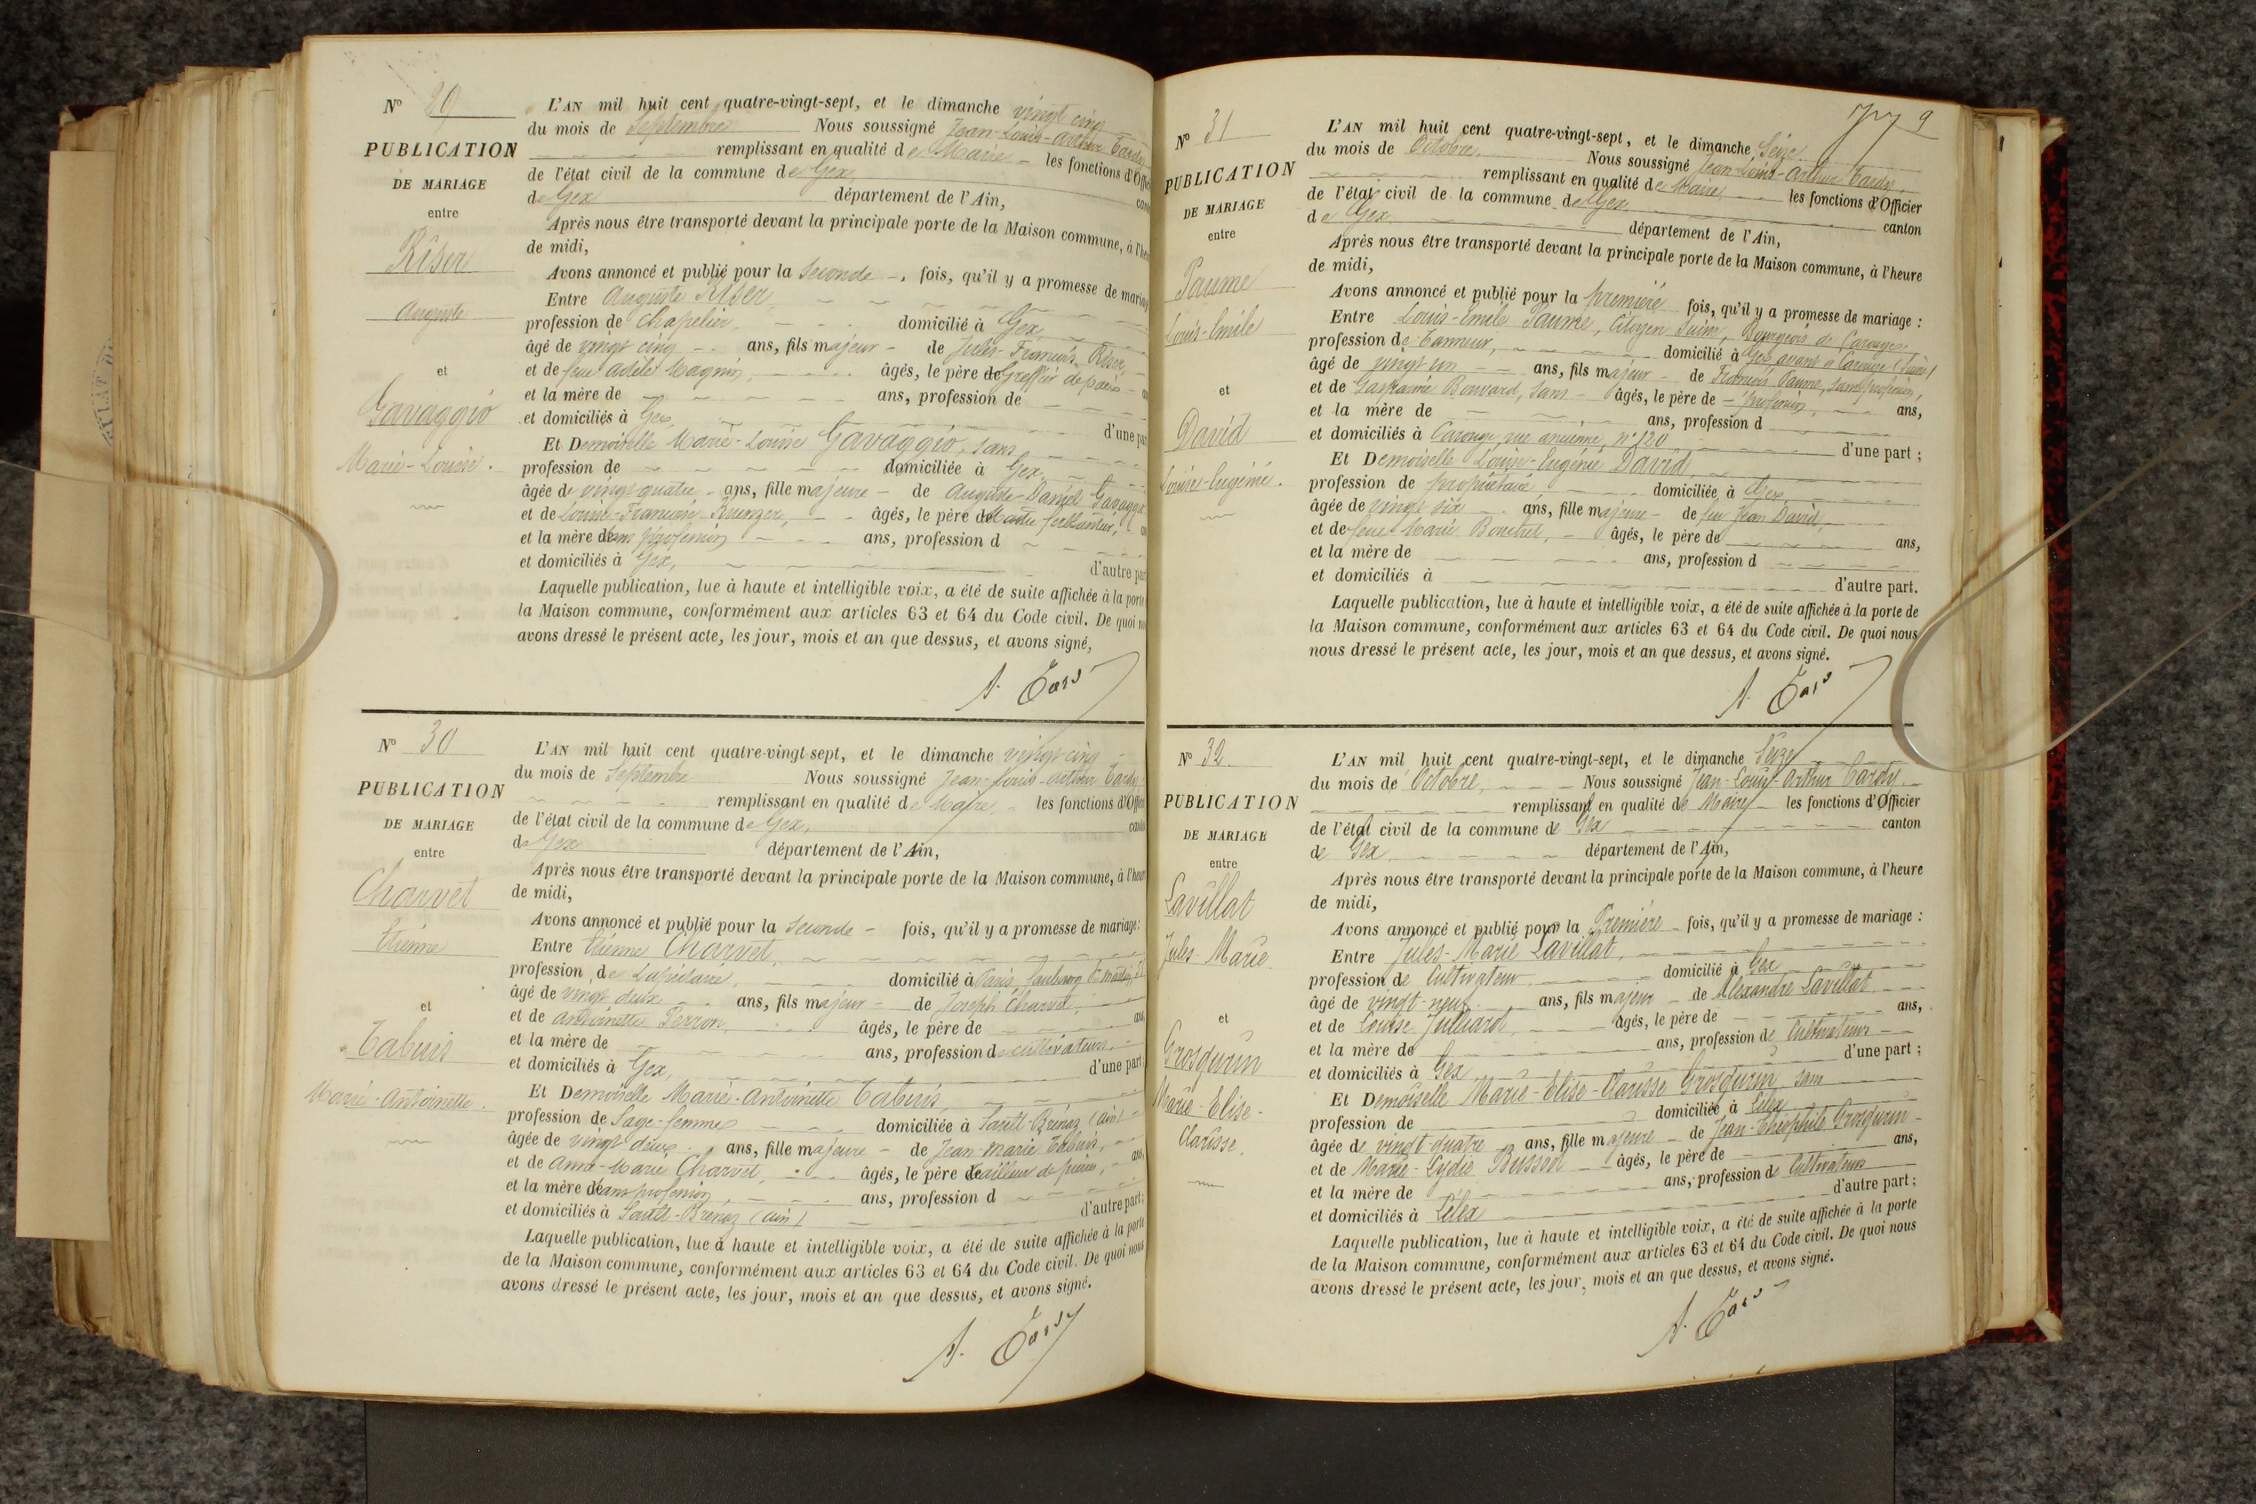 N° 29
PUBLICATION
DE MARIAGE
entre
Riser
Auguste
et
Gavaggio
Marie-Louise.
L'AN mil huit cent quatre-vingt-sept, et le dimanche vingt cinq
du mois de Septembre Nous soussigné Jean-Louis-Arthur Tardy
remplissant en qualité de Maire les fonctions d'Offic
de l'état civil de la commune de Gex
de Gex département de l'Ain,
Après nous être transporté devant la principale porte de la Maison commune, à l'he
de midi,
Avons annoncé et publié pour la Seconde fois, qu'il y a promesse de mariag
Entre Auguste Riser,
profession de Chapelier, domicilié à Gex,
âgé de vingt cinq ans, fils majeur de Jules-François Riser,
et de feue Adèle Magnin, âgés, le père de Greffier de paix
et la mère de ans, profession de
et domiciliés à Gex, d'une par
Et Demoiselle Marie-Louise Gavaggio, sans
profession de domiciliée à Gex,
âgée de vingt quatre ans, fille majeure de Auguste-Daniel Gavaggio
et de Louise-Françoise Ruenzer, âgés, le père de Maître ferblantier,
et la mère de sans profession ans, profession d
et domiciliés à Gex, d'autre par
Laquelle publication, lue à haute et intelligible voix, a été de suite affichée à la porte
la Maison commune, conformément aux articles 63 et 64 du Code civil. De quoi no
avons dressé le présent acte, les jour, mois et an que dessus, et avons signé,
A. Tardy
N° 30
PUBLICATION
DE MARIAGE
entre
Charvet
Etienne
et
Tabuis
Marie-Antoinette.
L'AN mil huit cent quatre-vingt-sept, et le dimanche vingt-cinq
du mois de Septembre Nous soussigné Jean-Louis-Arthur Tardy
remplissant en qualité de Maire les fonctions d'Offici
de l'état civil de la commune de Gex, canto
de Gex département de l'Ain,
Après nous être transporté devant la principale porte de la Maison commune, à l'heur
de midi,
Avons annoncé et publié pour la Seconde fois, qu'il y a promesse de mariage:
Entre Etienne Charvet,
profession de Lapidaire, domicilié à Paris, faubourg
âgé de vingt deux ans, fils majeur de Joseph Charvet,
et de Antoinette Perron, âgés, le père de ans,
et la mère de ans, profession de cultivateurs
et domiciliés à Gex, d'une part;
Et Demoiselle Marie-Antoinette Tabuis,
profession de Sage-femme domiciliée à Sault-Brénaz (Ain)
âgée de vingt deux ans, fille majeure de Jean-Marie Tabuis,
et de Anne-Marie Charvet, âgés, le père de tailleur de pierre, ans,
et la mère de sans profession, ans, profession d
et domiciliés à Sault-Brénaz (Ain) d'autre part;
Laquelle publication, lue à haute et intelligible voix, a été de suite affichée à la porte
de la Maison commune, conformément aux articles 63 et 64 du Code civil. De quoi nous
avons dressé le présent acte, les jour, mois et an que dessus, et avons signé.
A. Tardy
9
N° 31
PUBLICATION
DE MARIAGE
entre
Paume
Louis-Emile
et
David
Louise-Eugénie.
L'AN mil huit cent quatre-vingt-sept, et le dimanche Seize
du mois de Octobre. Nous soussigné Jean-Louis-Arthur Tardy
remplissant en qualité de Maire, les fonctions d'Officier
de l'état civil de la commune de Gex
de Gex canton
département de l'Ain,
Après nous être transporté devant la principale porte de la Maison commune, à l'heure
de midi,
Avons annoncé et publié pour la première fois, qu'il y a promesse de mariage :
Entre Louis-Emile Paume, Citoyen Suisse, Bourgeois de Carouge
profession de Tanneur, domicilié à Gex avant à Carouge (Suisse)
âgé de vingt un ans, fils majeur de François Paume, sans profession,
et de Bouvard, sans âgés, le père de profession, ans,
et la mère de ans, profession d
et domiciliés à Carouge, rue ancienne, n° 120 d'une part ;
Et Demoiselle Louise-Eugénie David
profession de propriétaire domiciliée à Gex
âgée de vingt six ans, fille majeure de feu Jean David,
et de feue Marie Bouchet, âgés, le père de ans,
et la mère de ans, profession d
et domiciliés à d'autre part.
Laquelle publication, lue à haute et intelligible voix, a été de suite affichée à la porte de
la Maison commune, conformément aux articles 63 et 64 du Code civil. De quoi nous
nous dressé le présent acte, les jour, mois et an que dessus, et avons signé.
A. Tardy
N° 32
PUBLICATION
DE MARIAGE
entre
Lavillat
Jules-Marie
et
Grosgurin
Marie-Elise-
Clarisse.
L'AN mil huit cent quatre-vingt-sept, et le dimanche Seize
du mois de Octobre, Nous soussigné Jean-Louis Arthur Tardy
remplissant en qualité de Maire les fonctions d'Officier
de l'état civil de la commune de Gex canton
de Gex département de l'Ain,
Après nous être transporté devant la principale porte de la Maison commune, à l'heure
de midi,
Avons annoncé et publié pour la Première fois, qu'il y a promesse de mariage :
Entre Jules-Marie Lavillat,
profession de Cultivateur domicilié à Gex
âgé de vingt-neuf ans, fils majeur de Alexandre Lavillat
et de Louise Julliard âgés, le père de ans,
et la mère de ans, profession de Cultivateurs
et domiciliés à Gex d'une part ;
Et Demoiselle Marie-Elise-Clarisse Grosgurin, sans
profession de domiciliée à Lélex
âgée de vingt-quatre ans, fille majeure de Jean-Théophile Grosgurin
et de Marie-Lydie Bussod âgés, le père de ans,
et la mère de ans, profession de Cultivateurs
et domiciliés à Lélex d'autre part ;
Laquelle publication, lue à haute et intelligible voix, a été de suite affichée à la porte
de la Maison commune, conformément aux articles 63 et 64 du Code civil. De quoi nous
avons dressé le présent acte, les jour, mois et an que dessus, et avons signé.
A. Tardy